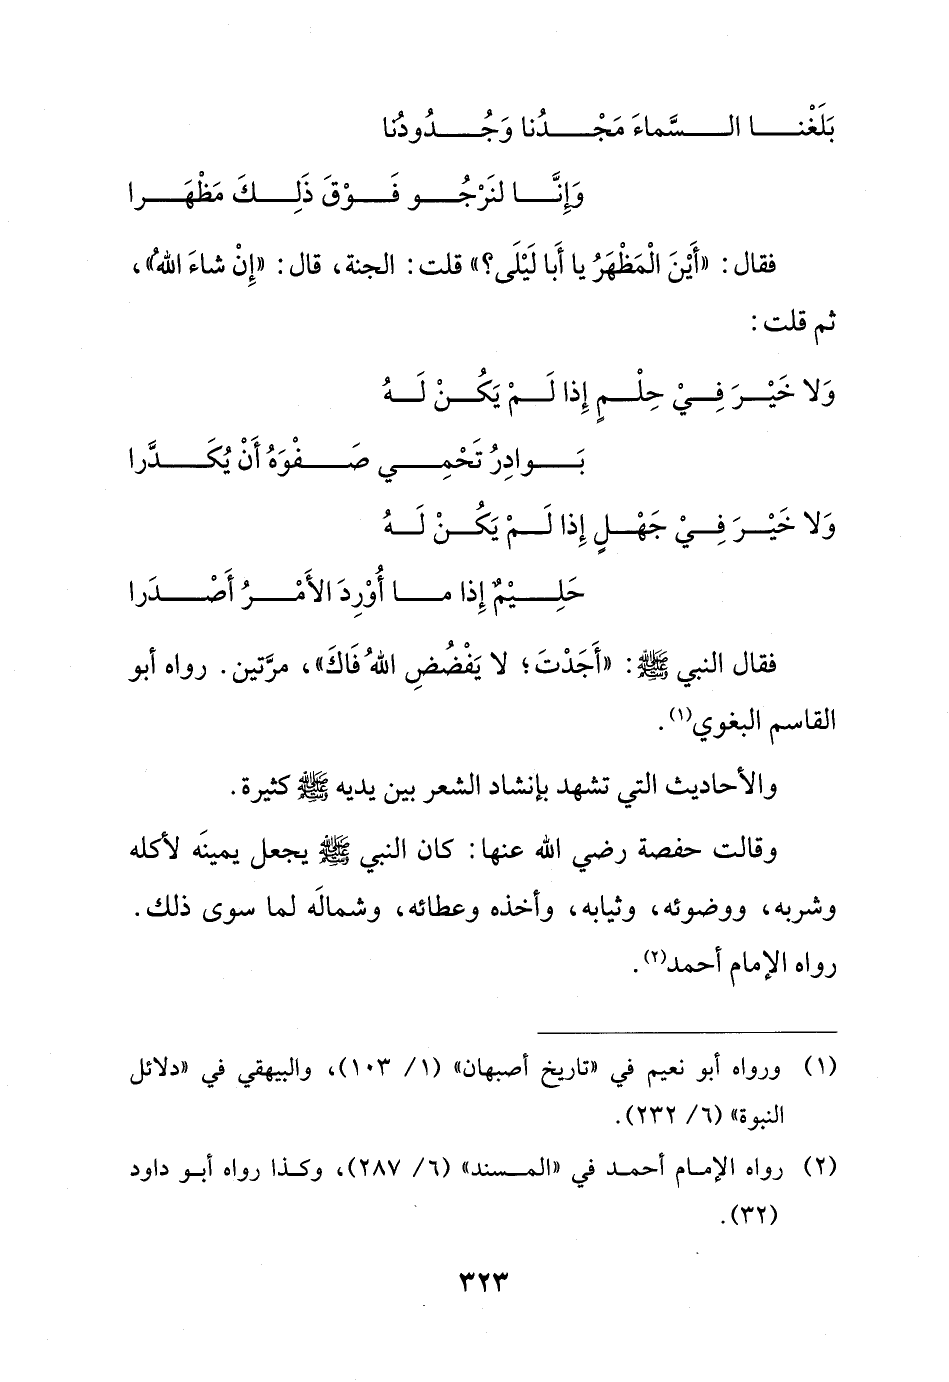 بَلَغْنا السَّماءَ مَجْدُنا وَجُدُودُنا
وَإِنَّا لنَرْجُو فَوْقَ ذَلِكَ مَظْهَرا
فقال: «أَيْنَ الْمَظْهَرُ يا أَبا لَيْلَى؟» قلت: الجنة، قال: «إِنْ شاءَ اللهُ»،
ثم قلت:
وَلا خَيْرَ فِيْ حِلْمٍ إِذا لَمْ يَكُنْ لَهُ
بَوادِرُ تَحْمِي صَفْوَهُ أَنْ يُكَدَّرا
وَلا خَيْرَ فِيْ جَهْلٍ إِذا لَمْ يَكُنْ لَهُ
حَلِيْمٌ إِذا ما أُوْرِدَ الأَمْرُ أَصْدَرا
فقال النبي ﷺ: «أَجَدْتَ؛ لا يَفْضُضِ اللهُ فَاكَ»، مرَّتين. رواه أبو
القاسم البغوي(١).
والأحاديث التي تشهد بإنشاد الشعر بين يديه ﷺ كثيرة.
وقالت حفصة رضي الله عنها: كان النبي ﷺ يجعل يمينَه لأكله
وشربه، ووضوئه، وثيابه، وأخذه وعطائه، وشمالَه لما سوى ذلك.
رواه الإمام أحمد(٢).
(١) ورواه أبو نعيم في «تاريخ أصبهان» (١/ ١٠٣)، والبيهقي في «دلائل
النبوة» (٦/ ٢٣٢).
(٢) رواه الإمام أحمد في «المسند» (٦/ ٢٨٧)، وكذا رواه أبو داود
(٣٢).
٣٢٣